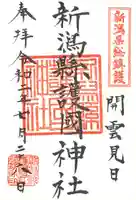 新潟県総鎮護
開雲見日
新潟縣護國神社
奉拝 令和二年
二十八日